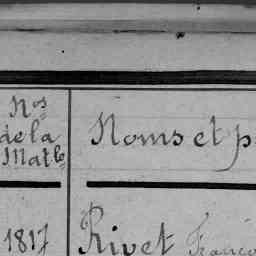 Nos
de la
Matle
Noms et p
1817 Rivet Franço